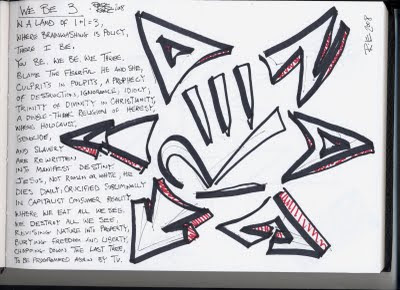 WE BE 3
IN A LAND OF 1+1=3,
WHERE BRAINWASHING IS POLICY,
THERE I BE,
YOU BE, WE BE, WE THREE,
BLAME THE FEARFUL HE AND SHE,
CULPRITS IN PULPITS, A PROPHECY
OF DESTRUCTION, IGNORANCE, IDIOCY,
TRINITY OF DIVINITY IN CHRISTIANITY,
A DOUBLE-THINK RELIGION OF HERESY,
WHERE HOLOCAUST,
GENOCIDE,
AND SLAVERY
ARE REWRITTEN
INTO MANIFEST DESTINY.
JESUS, NOT ROMAN OR WHITE, HE
DIES DAILY, CRUCIFIED SUBLIMINALLY
IN CAPITALIST CONSUMER REALITY
WHERE WE EAT ALL WE SEE,
WE DESTROY ALL WE SEE,
REVISING NATURE INTO PROPERTY,
BURYING FREEDOM AND LIBERTY,
CHOPPING DOWN THE LAST TREE,
TO BE PROGRAMMED AGAIN BY TV.